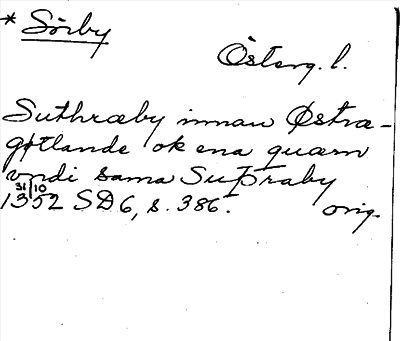 * Sörby
Österg. l.
Suthræby innan Østra-
gøtlande ok ena quærn
vndi sama Suþraby
31/10
1352 SD6, s. 386. orig.